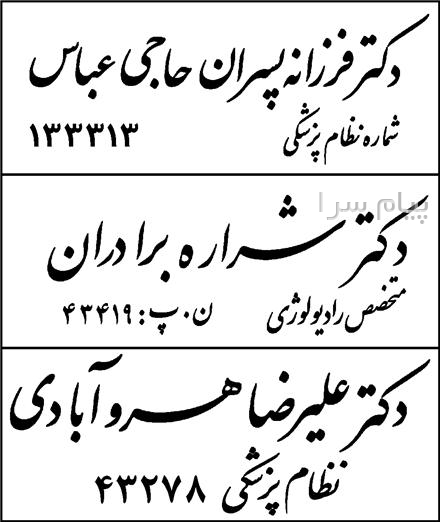 دکتر فرزانه پسران حاجی عباس
شماره نظام پزشکی ۱۳۳۳۱۳
پیام سرا
دکتر شراره برادران
متخصص رادیولوژی ن.پ: ۴۳۴۱۹
دکتر علیرضا هروآبادی
نظام پزشکی ۴۳۲۷۸